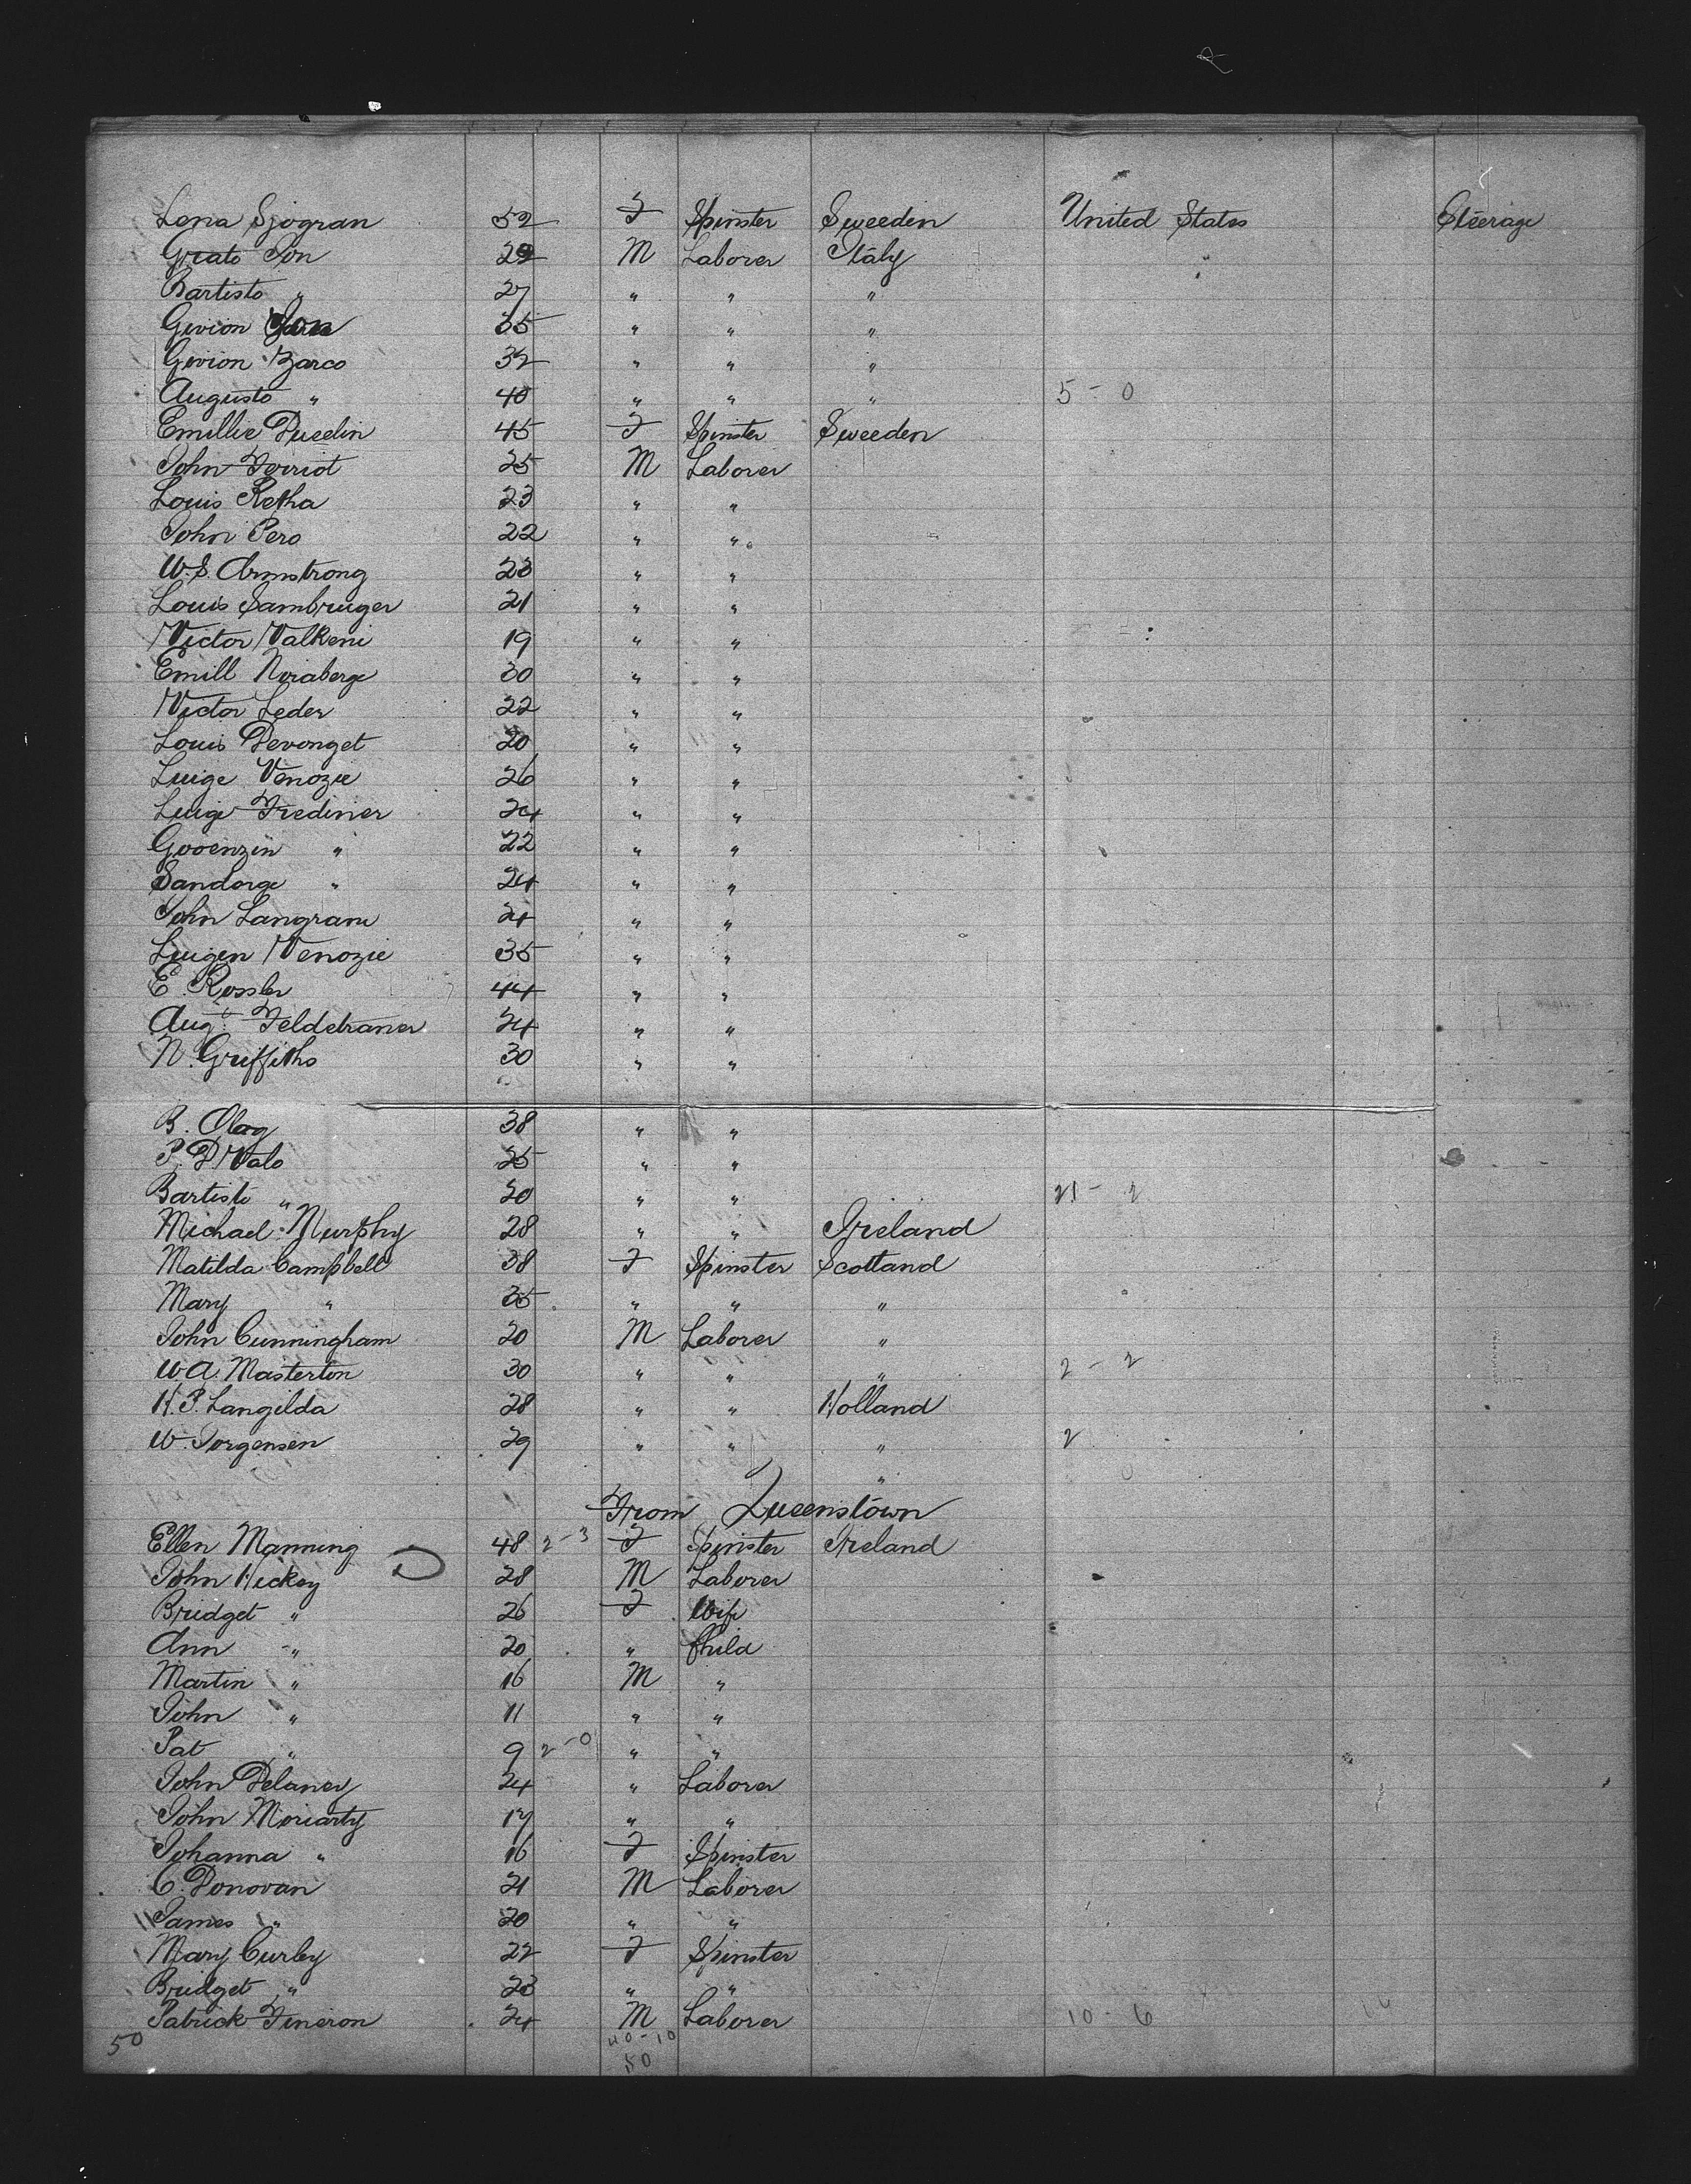 Lena Sjogran 52 F Spinster Sweedin United States Steerage
Grato Jon 22 M Laborer Italy
Bartisto " 27 " " "
Gevion 35 " " "
Gevion Zarco 32 " " "
Augusto " 40 " " " 5 - 0
Emillie Ducelin 45 F Spinster Sweeden
John Ferriot 25 M Laborer
Louis Retha 23 " "
John Pero 22 " "
W. S. Armstrong 23 " "
Louis Sambruger 21 " "
Victor Valkeni 19 " "
Emill Noraberge 30 " "
Victor Leder 22 " "
Louis Devonget 20 " "
Luige Venozie 26 " "
Luige Frediner 24 " "
Gooenzin " 22 " "
Sandorge " 24 " "
John Langram 24 " "
Luigen Venozie 35 " "
E. Rossler 44 " "
Augt Feldetraner 24 " "
N. Griffiths 30 " "
B. Olerg 38 " "
P. D Valo 25 " "
Bartisto " 20 " " 21 - 2
Michael Murphy 28 " " Ireland
Matilda Campbell 38 F Spinster Scotland
Mary " 35 " " "
John Cunningham 20 M Laborer "
W. A. Masterton 30 " " " 2 - 2
H. P. Langilda 28 " " Holland
W. Jorgensen 29 " " " 2
"
From Queenstown
Ellen Manning 48 2-3 F Spinster Ireland
John Hickey 28 M Laborer
Bridget " 26 F Wife
Ann " 20 " Child
Martin " 16 M "
John " 11 " "
Pat " 9 2-0 " "
John Delaney 24 " Laborer
John Moriarty 17 " "
Johanna " 16 F Spinster
C. Donovan 21 M Laborer
James " 20 " "
Mary Curley 22 F Spinster
Bridget " 23 " "
Patrick Fineron 24 M Laborer 10 - 6
50 40-10
50